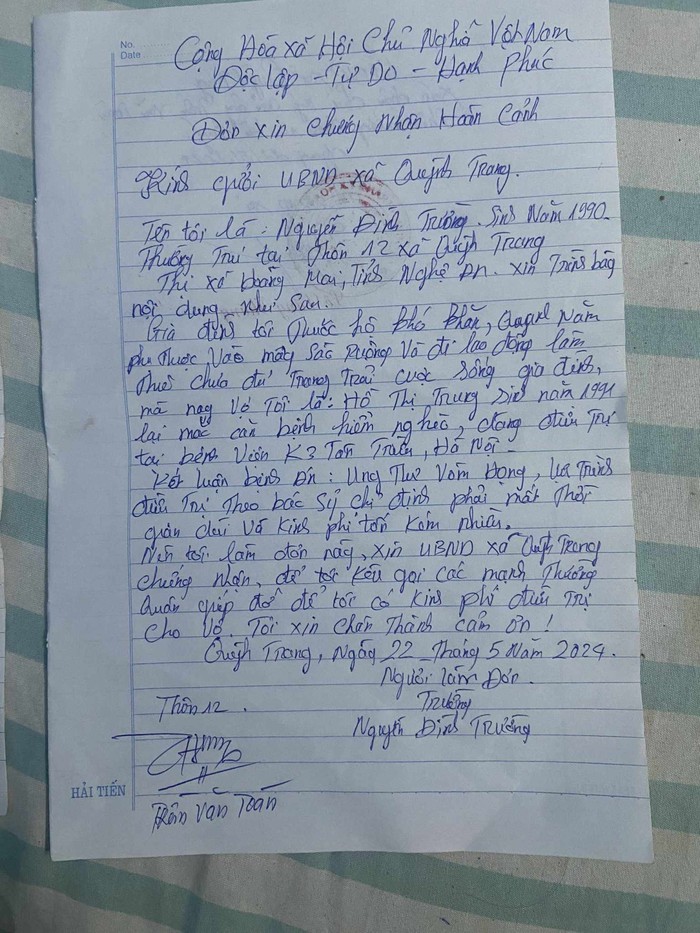 No.
Date
Cộng Hóa xã Hội Chủ Nghĩa Việt Nam
Độc lập - Tự Do - Hạnh Phúc
Đơn xin Chứng Nhận Hoàn Cảnh
Kính gửi UBND xã Quỳnh Trang.
Tên tôi là: Nguyễn Đình Trường. Sinh Năm 1990.
Thường Trú tại Thôn 12 xã Quỳnh Trang
Thị xã Hoàng Mai, Tỉnh Nghệ An. xin Trình bày
nội dung như sau.
Gia đình tôi Thuộc hộ khó khăn, Quanh Năm
phụ Thuộc Vào mấy Sào Ruộng Và đi lao động làm
Thuê chưa đủ Trang Trải cuộc sống gia đình,
mà nay Vợ Tôi là: Hồ Thị Trung sinh năm 1991
lại mắc căn bệnh hiểm nghèo, đang điều Trị
tại bệnh Viện K3 Tân Triều, Hà Nội -
Kết luận bệnh Án: Ung Thư Vòm Họng, lộ Trình
điều Trị Theo bác Sỹ chỉ định phải mất Thời
gian dài Và Kinh phí tốn Kém nhiều.
Nên tôi làm đơn này, xin UBND xã Quỳnh Trang
chứng nhận, để tôi Kêu gọi các mạnh Thường
Quân giúp đỡ để tôi có Kinh phí điều Trị
cho Vợ. Tôi xin Chân Thành cảm ơn!
Quỳnh Trang, Ngày 22 Tháng 5 Năm 2024.
Người làm Đơn.
Thôn 12.
Trường
Nguyễn Đình Trường
HẢI TIẾN
Trần Văn Toàn